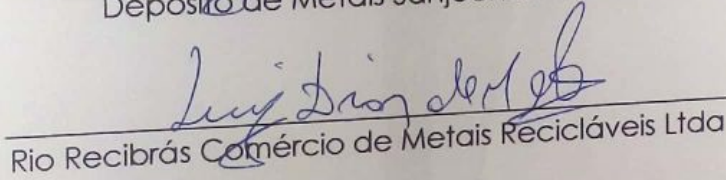 Depósito de Metais
Luiz Dias de Melo
Rio Recibrás Comércio de Metais Recicláveis Ltda